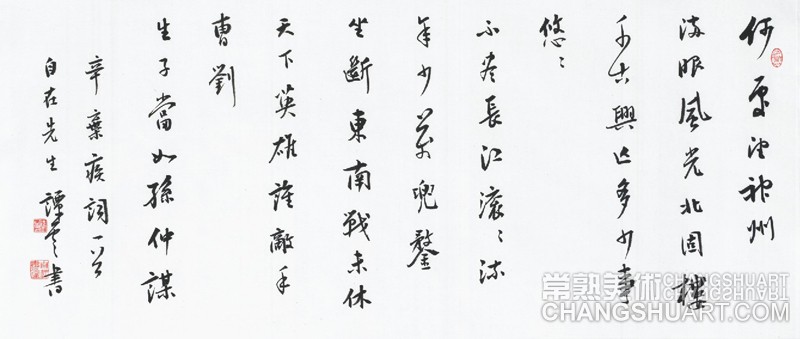 何處望神州
滿眼風光北固樓
千古興亡多少事
悠〻
不盡長江滾〻流
年少萬兜鍪
坐斷東南戰未休
天下英雄誰敵手
曹劉
生子當如孫仲謀
辛棄疾詞一首
自在先生譚雲書
常熟美術
CHANGSHUART
CHANGSHUART.COM